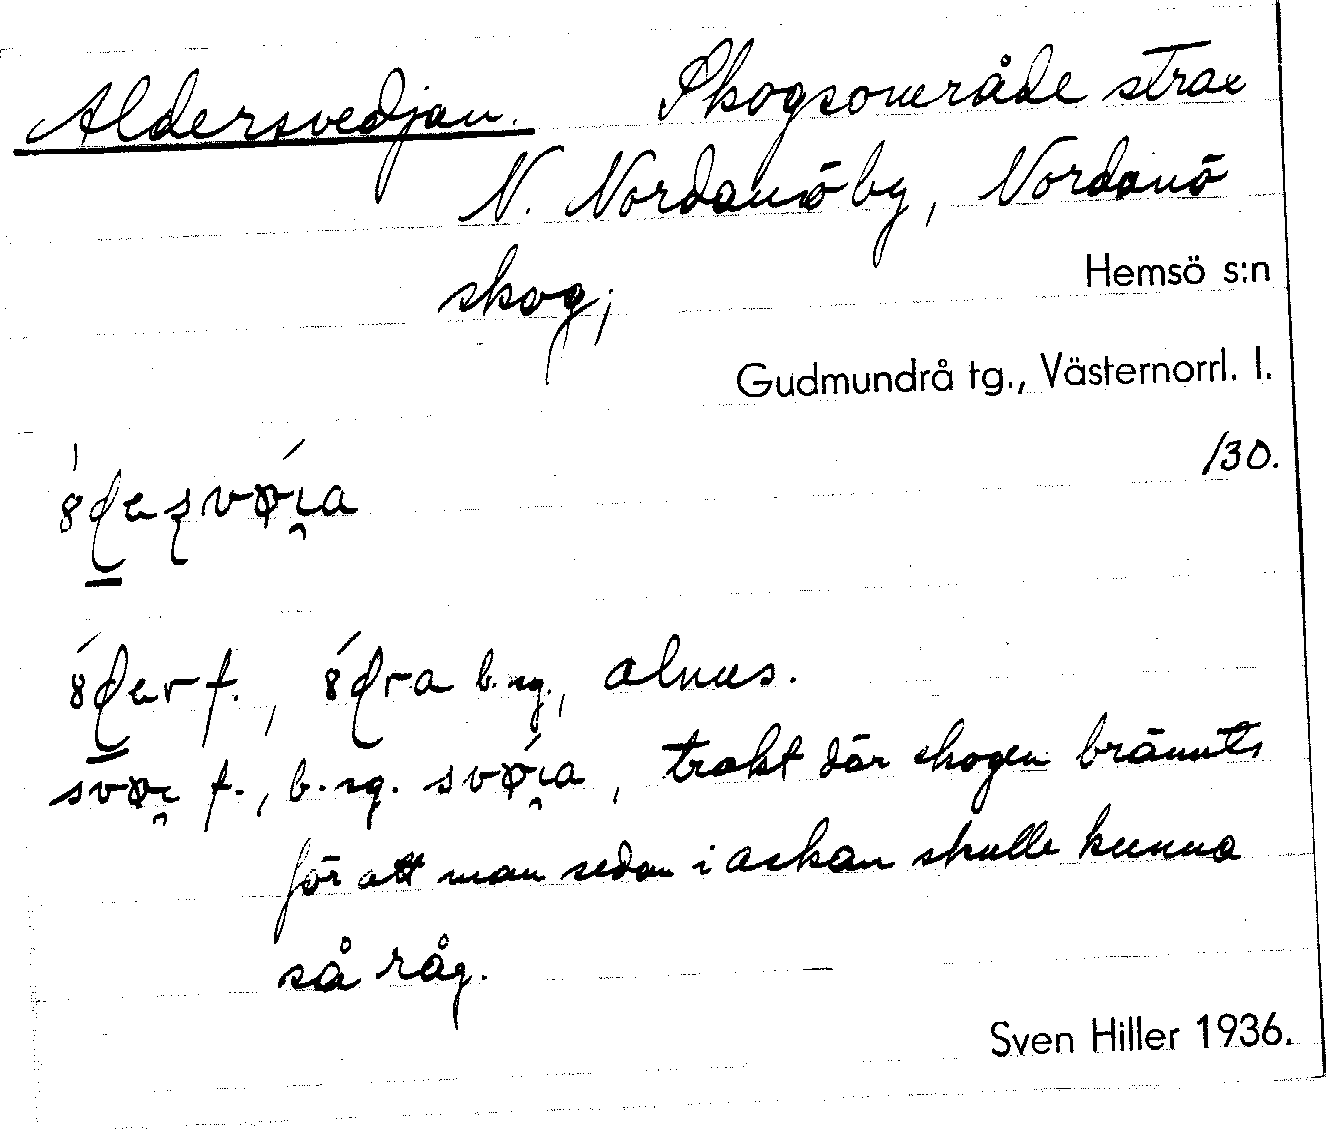 Aldersvedjan. Skogsområde strax
N. Nordanö by, Nordanö
skog,
Hemsö s:n
Gudmundrå tg., Västernorrl. l.
/30.
f., b. sg., alnus.
f., b. sg. , trakt där skogen bränts
för att man sedan i askan skulle kunna
så råg.
Sven Hiller 1936.